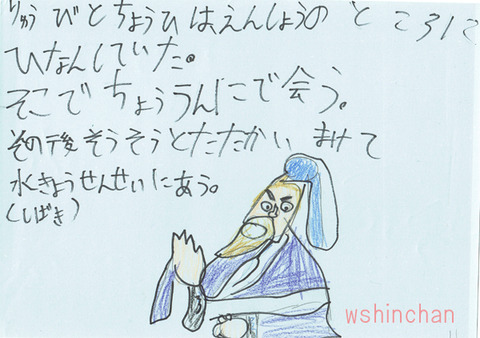 りゅうびとちょうひはえんしょうのところに
ひなんしていた。
そこでちょううんにで会う。
その後そうそうとたたかい まけて
水きょうせんせいにあう。
(しばき)
wshinchan